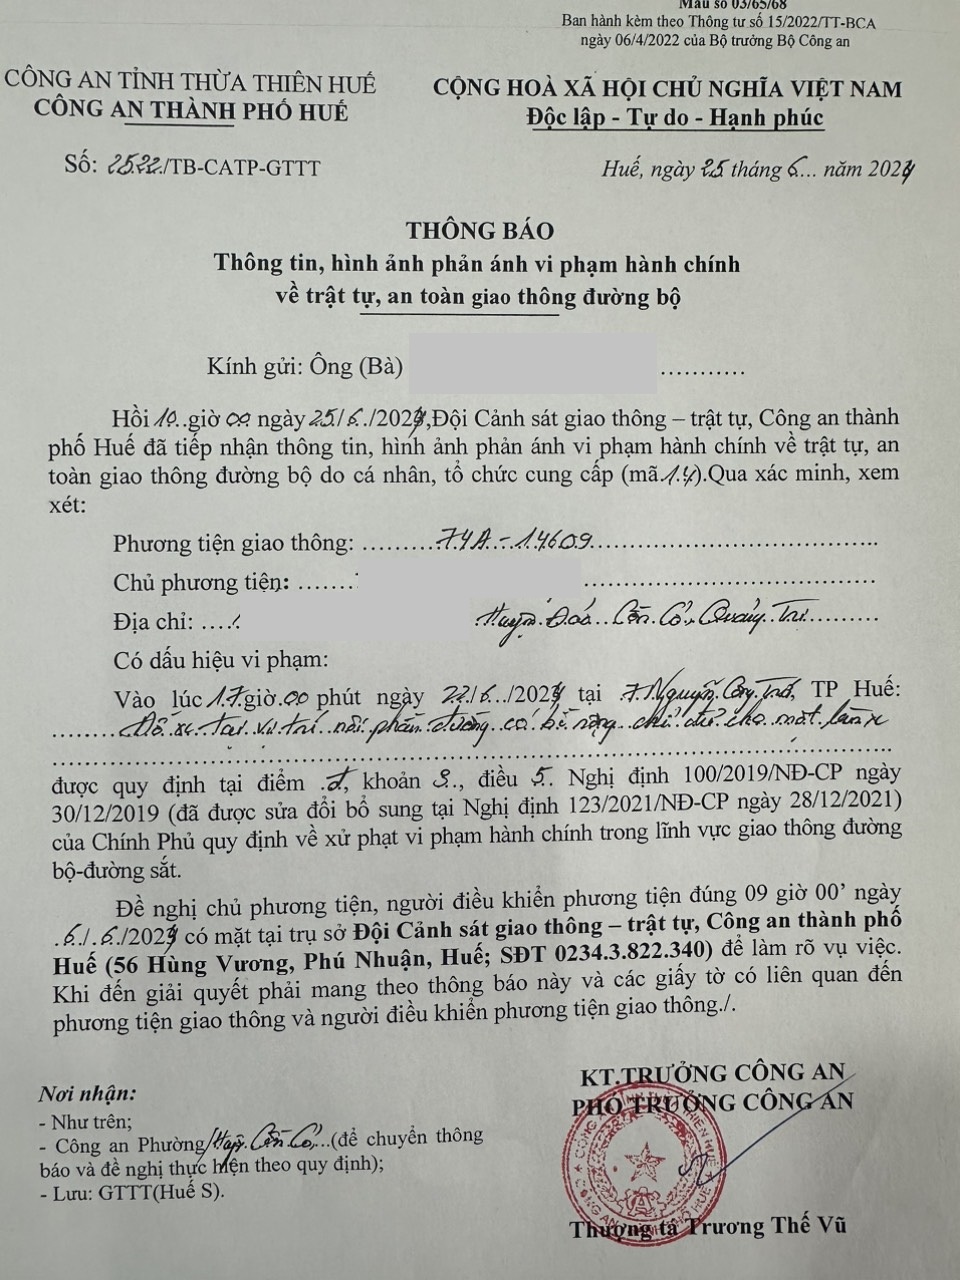 Mẫu số 03/65/68
Ban hành kèm theo Thông tư số 15/2022/TT-BCA
ngày 06/4/2022 của Bộ trưởng Bộ Công an
CÔNG AN TỈNH THỪA THIÊN HUẾ
CÔNG AN THÀNH PHỐ HUẾ
CỘNG HOÀ XÃ HỘI CHỦ NGHĨA VIỆT NAM
Độc lập - Tự do - Hạnh phúc
Số: 2522./TB-CATP-GTTT
Huế, ngày 25 tháng 6... năm 2024
THÔNG BÁO
Thông tin, hình ảnh phản ánh vi phạm hành chính
về trật tự, an toàn giao thông đường bộ
Kính gửi: Ông (Bà) ...........
Hồi 10..giờ 00 ngày 25/6./2024,Đội Cảnh sát giao thông – trật tự, Công an thành
phố Huế đã tiếp nhận thông tin, hình ảnh phản ánh vi phạm hành chính về trật tự, an
toàn giao thông đường bộ do cá nhân, tổ chức cung cấp (mã 1.4).Qua xác minh, xem
xét:
Phương tiện giao thông: ..........74A-14609..........
Chủ phương tiện: ..........
Địa chỉ: .... Huyện Đảo Cồn Cỏ, Quảng Trị..........
Có dấu hiệu vi phạm:
Vào lúc 17 giờ 00 phút ngày 22/6../2024 tại 7 Nguyễn Công Trứ, TP Huế:
........Đỗ xe tại vị trí nơi phần đường có bề rộng chỉ đủ cho một làn x
được quy định tại điểm đ, khoản 3., điều 5. Nghị định 100/2019/NĐ-CP ngày
30/12/2019 (đã được sửa đổi bổ sung tại Nghị định 123/2021/NĐ-CP ngày 28/12/2021)
của Chính Phủ quy định về xử phạt vi phạm hành chính trong lĩnh vực giao thông đường
bộ-đường sắt.
Đề nghị chủ phương tiện, người điều khiển phương tiện đúng 09 giờ 00’ ngày
.6./.6./2024 có mặt tại trụ sở Đội Cảnh sát giao thông – trật tự, Công an thành phố
Huế (56 Hùng Vương, Phú Nhuận, Huế; SĐT 0234.3.822.340) để làm rõ vụ việc.
Khi đến giải quyết phải mang theo thông báo này và các giấy tờ có liên quan đến
phương tiện giao thông và người điều khiển phương tiện giao thông./.
Nơi nhận:
- Như trên;
- Công an Phường/Huyện Cồn Cỏ...(để chuyển thông
báo và đề nghị thực hiện theo quy định);
- Lưu: GTTT(Huế S).
KT.TRƯỞNG CÔNG AN
PHÓ TRƯỞNG CÔNG AN
Thượng tá Trương Thế Vũ